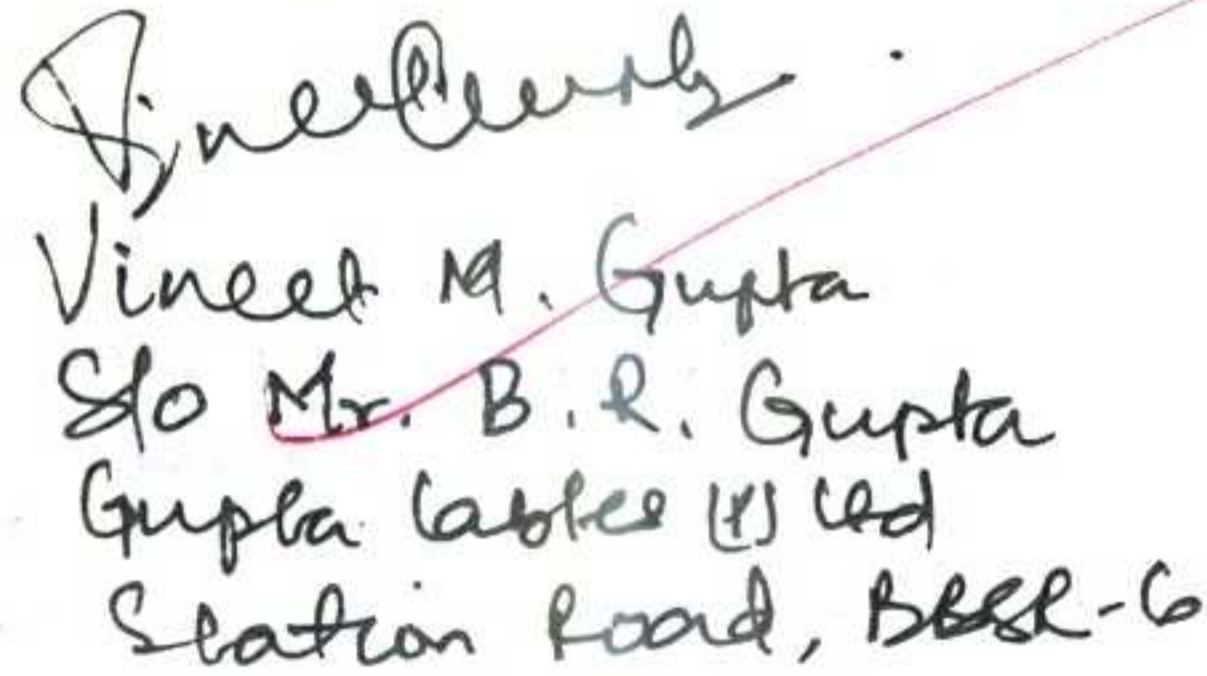 Vineet M. Gupta
S/o Mr. B. R. Gupta
Gupta Cables (P) Ltd
Station Road, BBSR-6